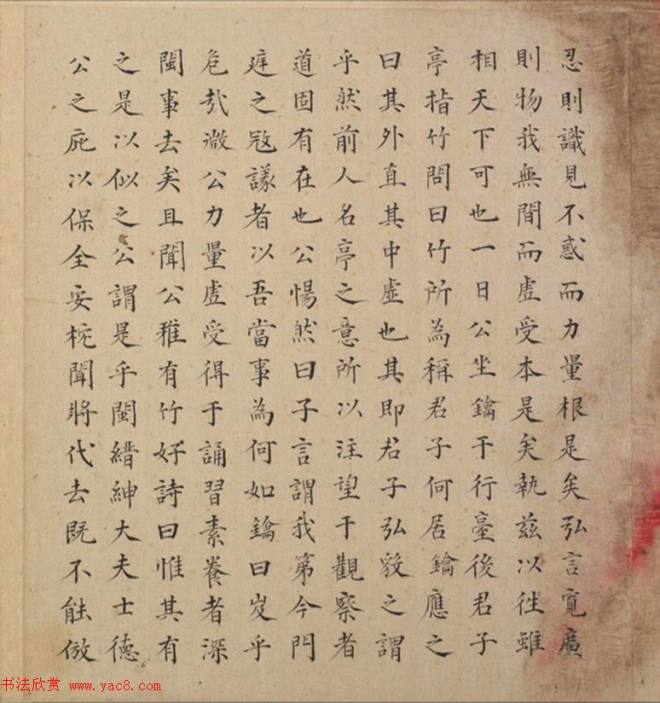 忍則識見不惑而力量根是矣弘言寬廣
則物我無間而虛受本是矣執茲以往雖
相天下可也一日公坐鑰于行臺後君子
亭指竹問曰竹所為稱君子何居鑰應之
曰其外直其中虛也其即君子弘毅之謂
乎然前人名亭之意所以注望于觀察者
道固有在也公惕然曰子言謂我第今門
庭之寇議者以吾當事為何如鑰曰岌乎
危哉微公力量虛受得于誦習素養者深
閩事去矣且聞公雅有竹好詩曰惟其有
之是以似之公謂是乎閩縉紳大夫士德
公之庇以保全妥枕聞將代去既不能倣
书法欣赏 www.yac8.com